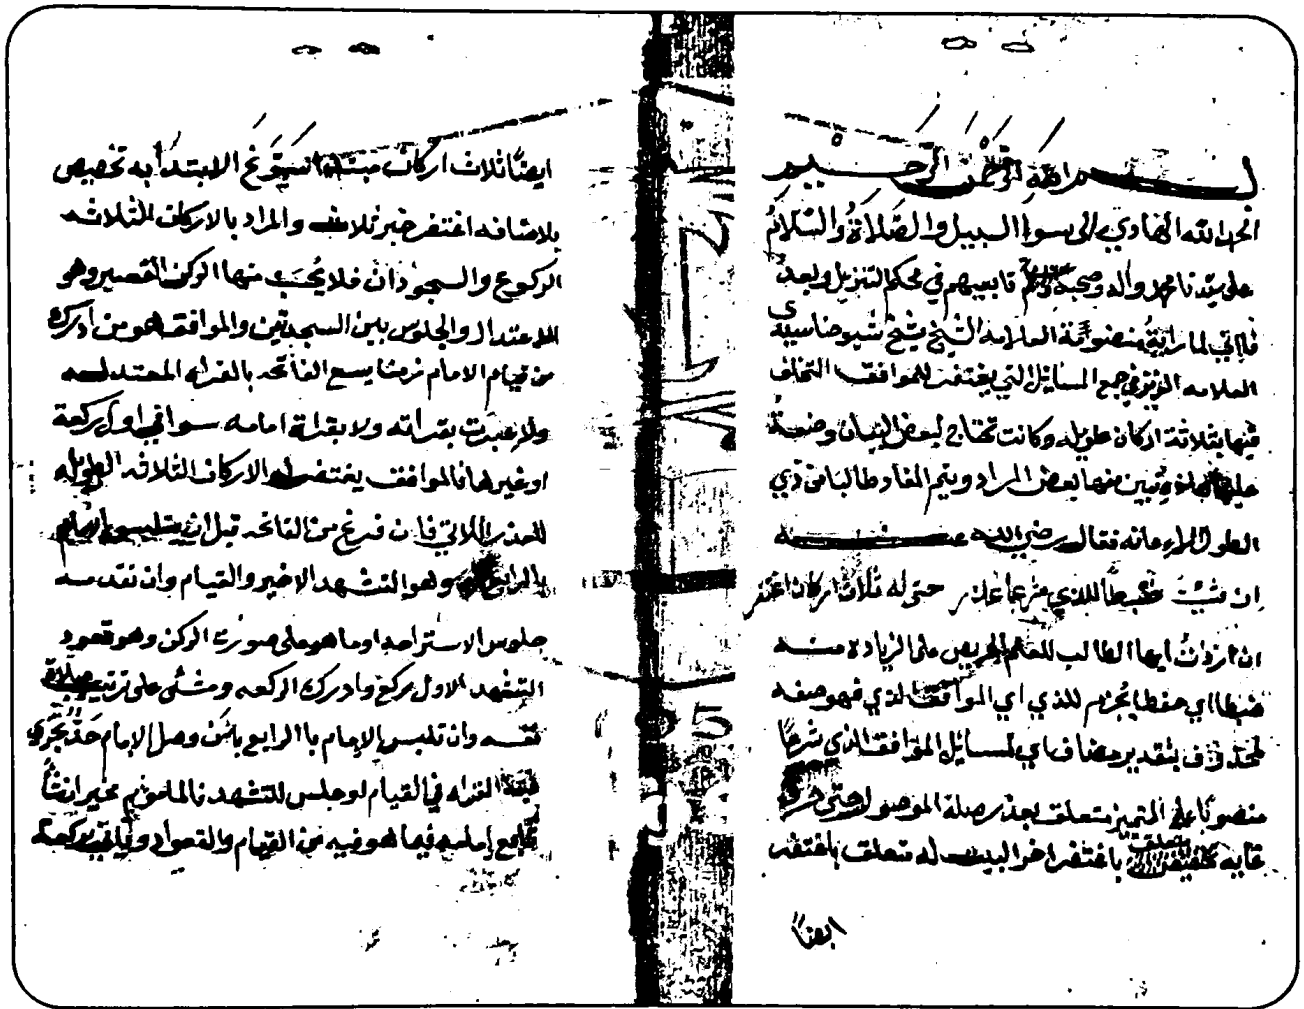 بسم الله الرحمن الرحيم
الحمد لله الهادي الى سوا السبيل والصلاة والسلام
على سيدنا محمد واله وصحبه وتابعيهم في محكم التنزيل وبعد
فاني لما رايت منضومة العلامه الشيخ شيخ شيوخنا سيدي
العلامه في جمع المسائل التي يغتفر للموافق التخلف
فيها بثلاثة اركان طويله وكانت تحتاج لبعض البيان وضعت
عليها تبين منها بعض المراد ويتم المفاد طالبا من ذي
الطول الاعانه فقال رضي الله عنه
ان شئت ضبطا للذي شرعا عذر حتى له ثلاث اركان اغتفر
ان اردت ايها الطالب للعلم الحريص على الزياده منه
ضبطا اي حفظا يجزم للذي اي الموافق الذي فهو صفه
لمحذوف بتقدير مضاف اي لمسائل الموافق الذي شرعا
منصوبا على التميز متعلق بعذر صلة الموصول حتى حرف
غايه متعلق باغتفر اخر البيت له متعلق باغتفر
ايضا
ايضا ثلاث اركان مبتدا المسوغ الابتدا به تخصيص
بلاضافه اغتفر خبر ثلاث والمراد بالاركان الثلاثه
الركوع والسجودان فلا يحسب منها الركن القصير وهو
الاعتدال والجلوس بين السجدتين والموافق هو من ادرك
من قيام الامام زمنا يسع الفاتحه بالقراه المعتدله
ولا عبرت بقراته ولا بقراة امامه سوا في اول ركعة
او غيرها فالموافق يغتفر له الاركان الثلاثه الطويله
للعذر الاتي فان فرغ من الفاتحه قبل ان يتلبس امامه
بالرابع وهو التشهد الاخير والقيام وان تقدمه
جلوس الاستراحه او ما هو على صورت الركن وهو قعود
التشهد الاول ركع وادرك الركعه ومشى على ترتيب صلاة
نفسه وان تلبس الامام بالرابع بان وصل الامام حد تجزي
فيه القراه في القيام او جلس للتشهد فالماموم مخير ان شا
تابع امامه فيما هو فيه من القيام والقعود وياتي بركعة